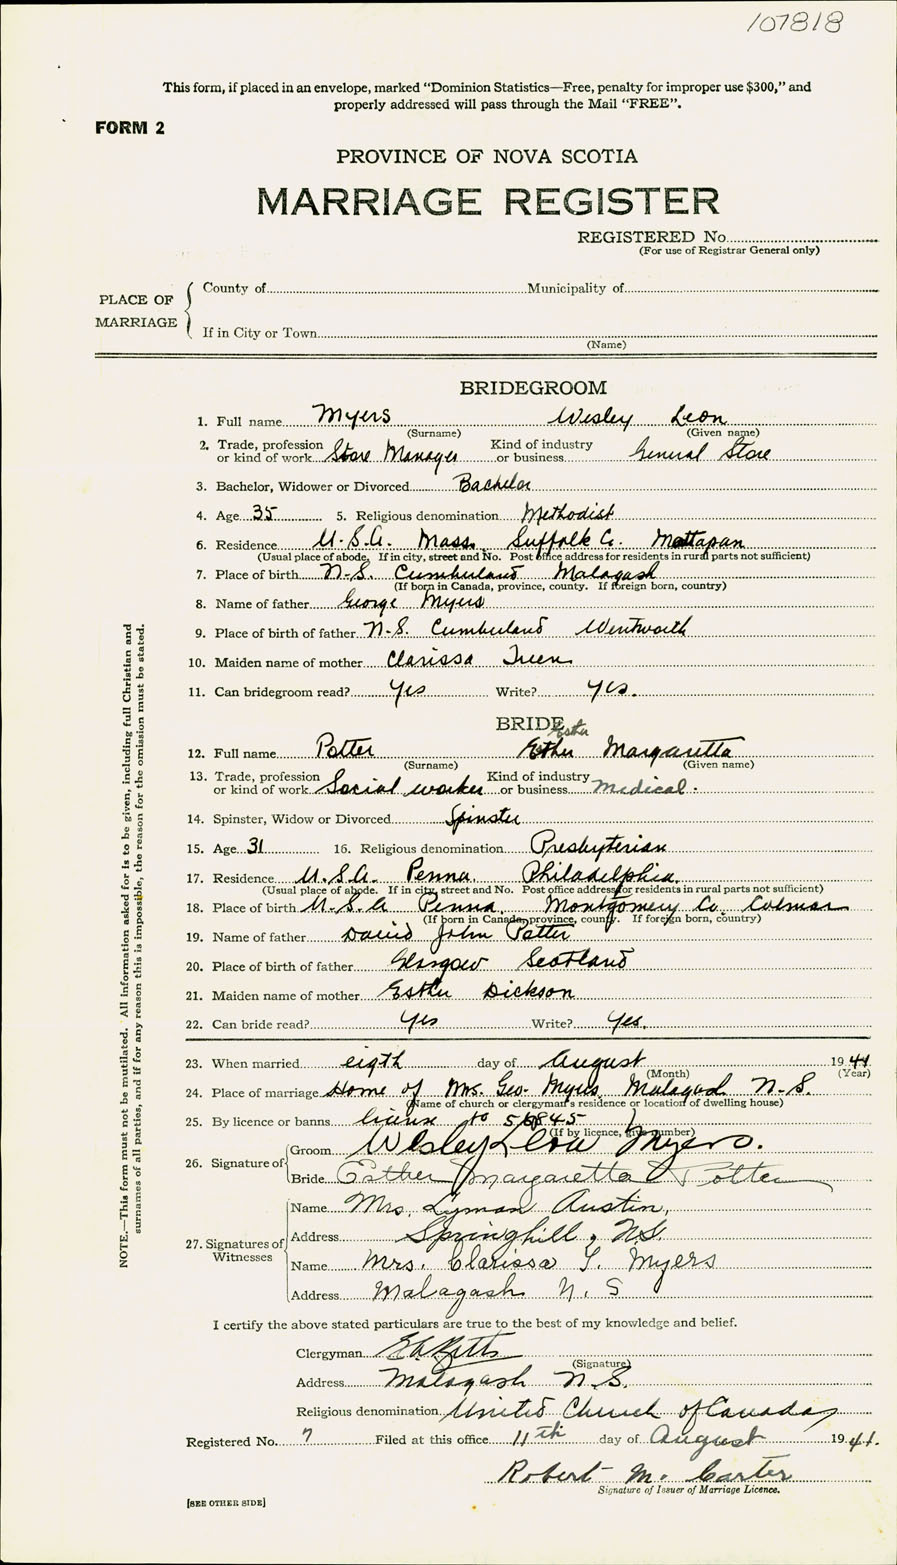 107818
This form, if placed in an envelope, marked "Dominion Statistics—Free, penalty for improper use $300," and
properly addressed will pass through the Mail "FREE".
FORM 2
PROVINCE OF NOVA SCOTIA
MARRIAGE REGISTER
REGISTERED No.
(For use of Registrar General only)
PLACE OF MARRIAGE
County of Municipality of
If in City or Town
(Name)
BRIDEGROOM
1. Full name Myers Wesley Leon
(Surname) (Given name)
2. Trade, profession or kind of work Store Manager Kind of industry or business General Store
3. Bachelor, Widower or Divorced Bachelor
4. Age 35 5. Religious denomination Methodist
6. Residence U.S.A. Mass. Suffolk Co. Mattapan
(Usual place of abode. If in city, street and No. Post office address for residents in rural parts not sufficient)
7. Place of birth N.S. Cumberland Malagash
(If born in Canada, province, county. If foreign born, country)
8. Name of father George Myers
9. Place of birth of father N.S. Cumberland Wentworth
10. Maiden name of mother Clarissa Treen
11. Can bridegroom read? Yes Write? Yes.
BRIDE
Esther
12. Full name Potter Esther Margaretta
(Surname) (Given name)
13. Trade, profession or kind of work Social worker Kind of industry or business Medical.
14. Spinster, Widow or Divorced Spinster
15. Age 31 16. Religious denomination Presbyterian
17. Residence U.S.A. Penna. Philadelphia.
(Usual place of abode. If in city, street and No. Post office address for residents in rural parts not sufficient)
18. Place of birth U.S.A Penna. Montgomery Co. Colmar
(If born in Canada, province, county. If foreign born, country)
19. Name of father David John Potter
20. Place of birth of father Glasgow Scotland
21. Maiden name of mother Esther Dickson
22. Can bride read? Yes Write? Yes.
23. When married eigth day of August 1941
(Month) (Year)
24. Place of marriage Home of Mrs. Geo. Myers Malagash N.S.
(Name of church or clergyman's residence or location of dwelling house)
25. By licence or banns license 56845
(If by licence, give number)
26. Signature of
Groom Wesley Leon Myers.
Bride Esther Margaretta Potter
27. Signatures of Witnesses
Name Mrs. Lyman Austin,
Address Springhill, N.S.
Name Mrs. Clarissa T. Myers
Address Malagash N. S
I certify the above stated particulars are true to the best of my knowledge and belief.
Clergyman
(Signature)
Address Malagash N.S.
Religious denomination United Church of Canada
Registered No. 7 Filed at this office 11th day of August 1941.
Robert M. Carter
Signature of Issuer of Marriage Licence.
[SEE OTHER SIDE]
NOTE.—This form must not be mutilated. All information asked for is to be given, including full Christian and
surnames of all parties, and if for any reason this is impossible, the reason for the omission must be stated.